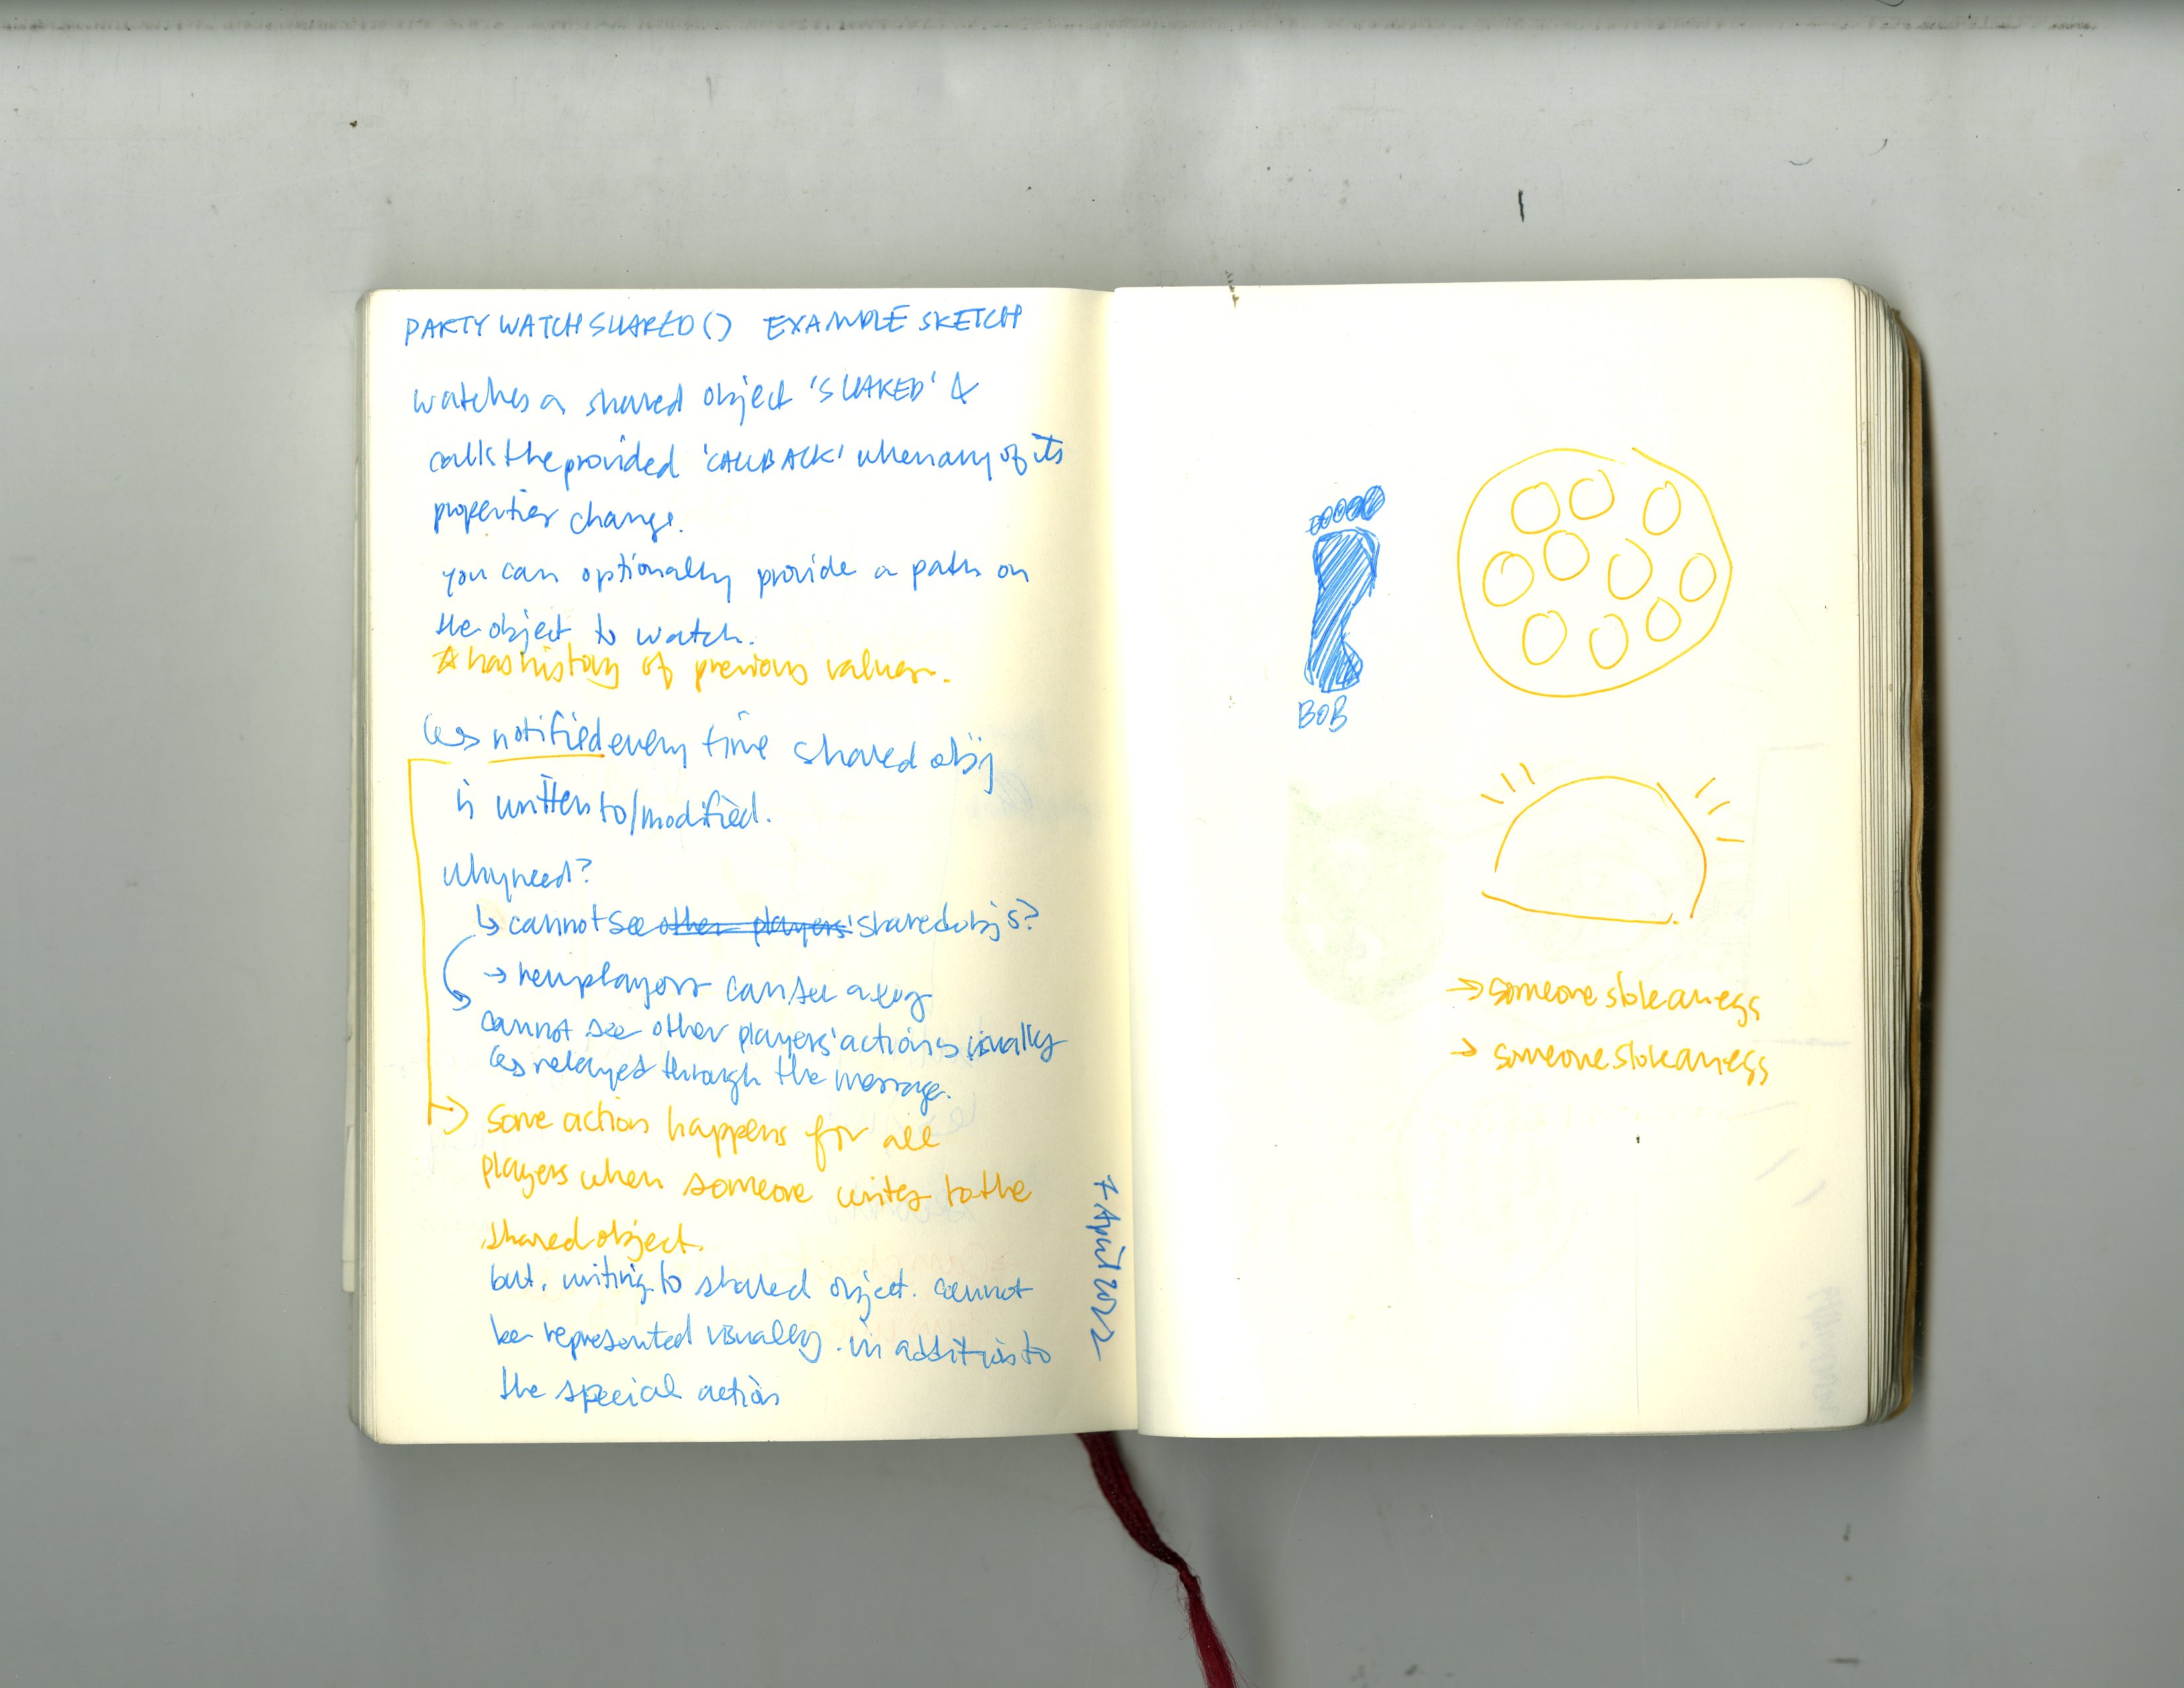 PARTY WATCH SHARED() EXAMPLE SKETCH
watches a shared object 'SHARED' &
calls the provided 'CALLBACK' when any of its
properties change.
you can optionally provide a path on
the object to watch.
☆ has history of previous values.
↳ notified every time shared obj
is written to/modified.
why need?
↳ cannot see other players' shared objs?
→ new players can see a log
cannot see other players' actions visually
↳ relayed through the message.
→ some action happens for all
players when someone writes to the
shared object.
but. writing to shared object. cannot
be represented visually. in addition to
the special action
7 April 2022
BOB
→ someone stole an egg
→ someone stole an egg